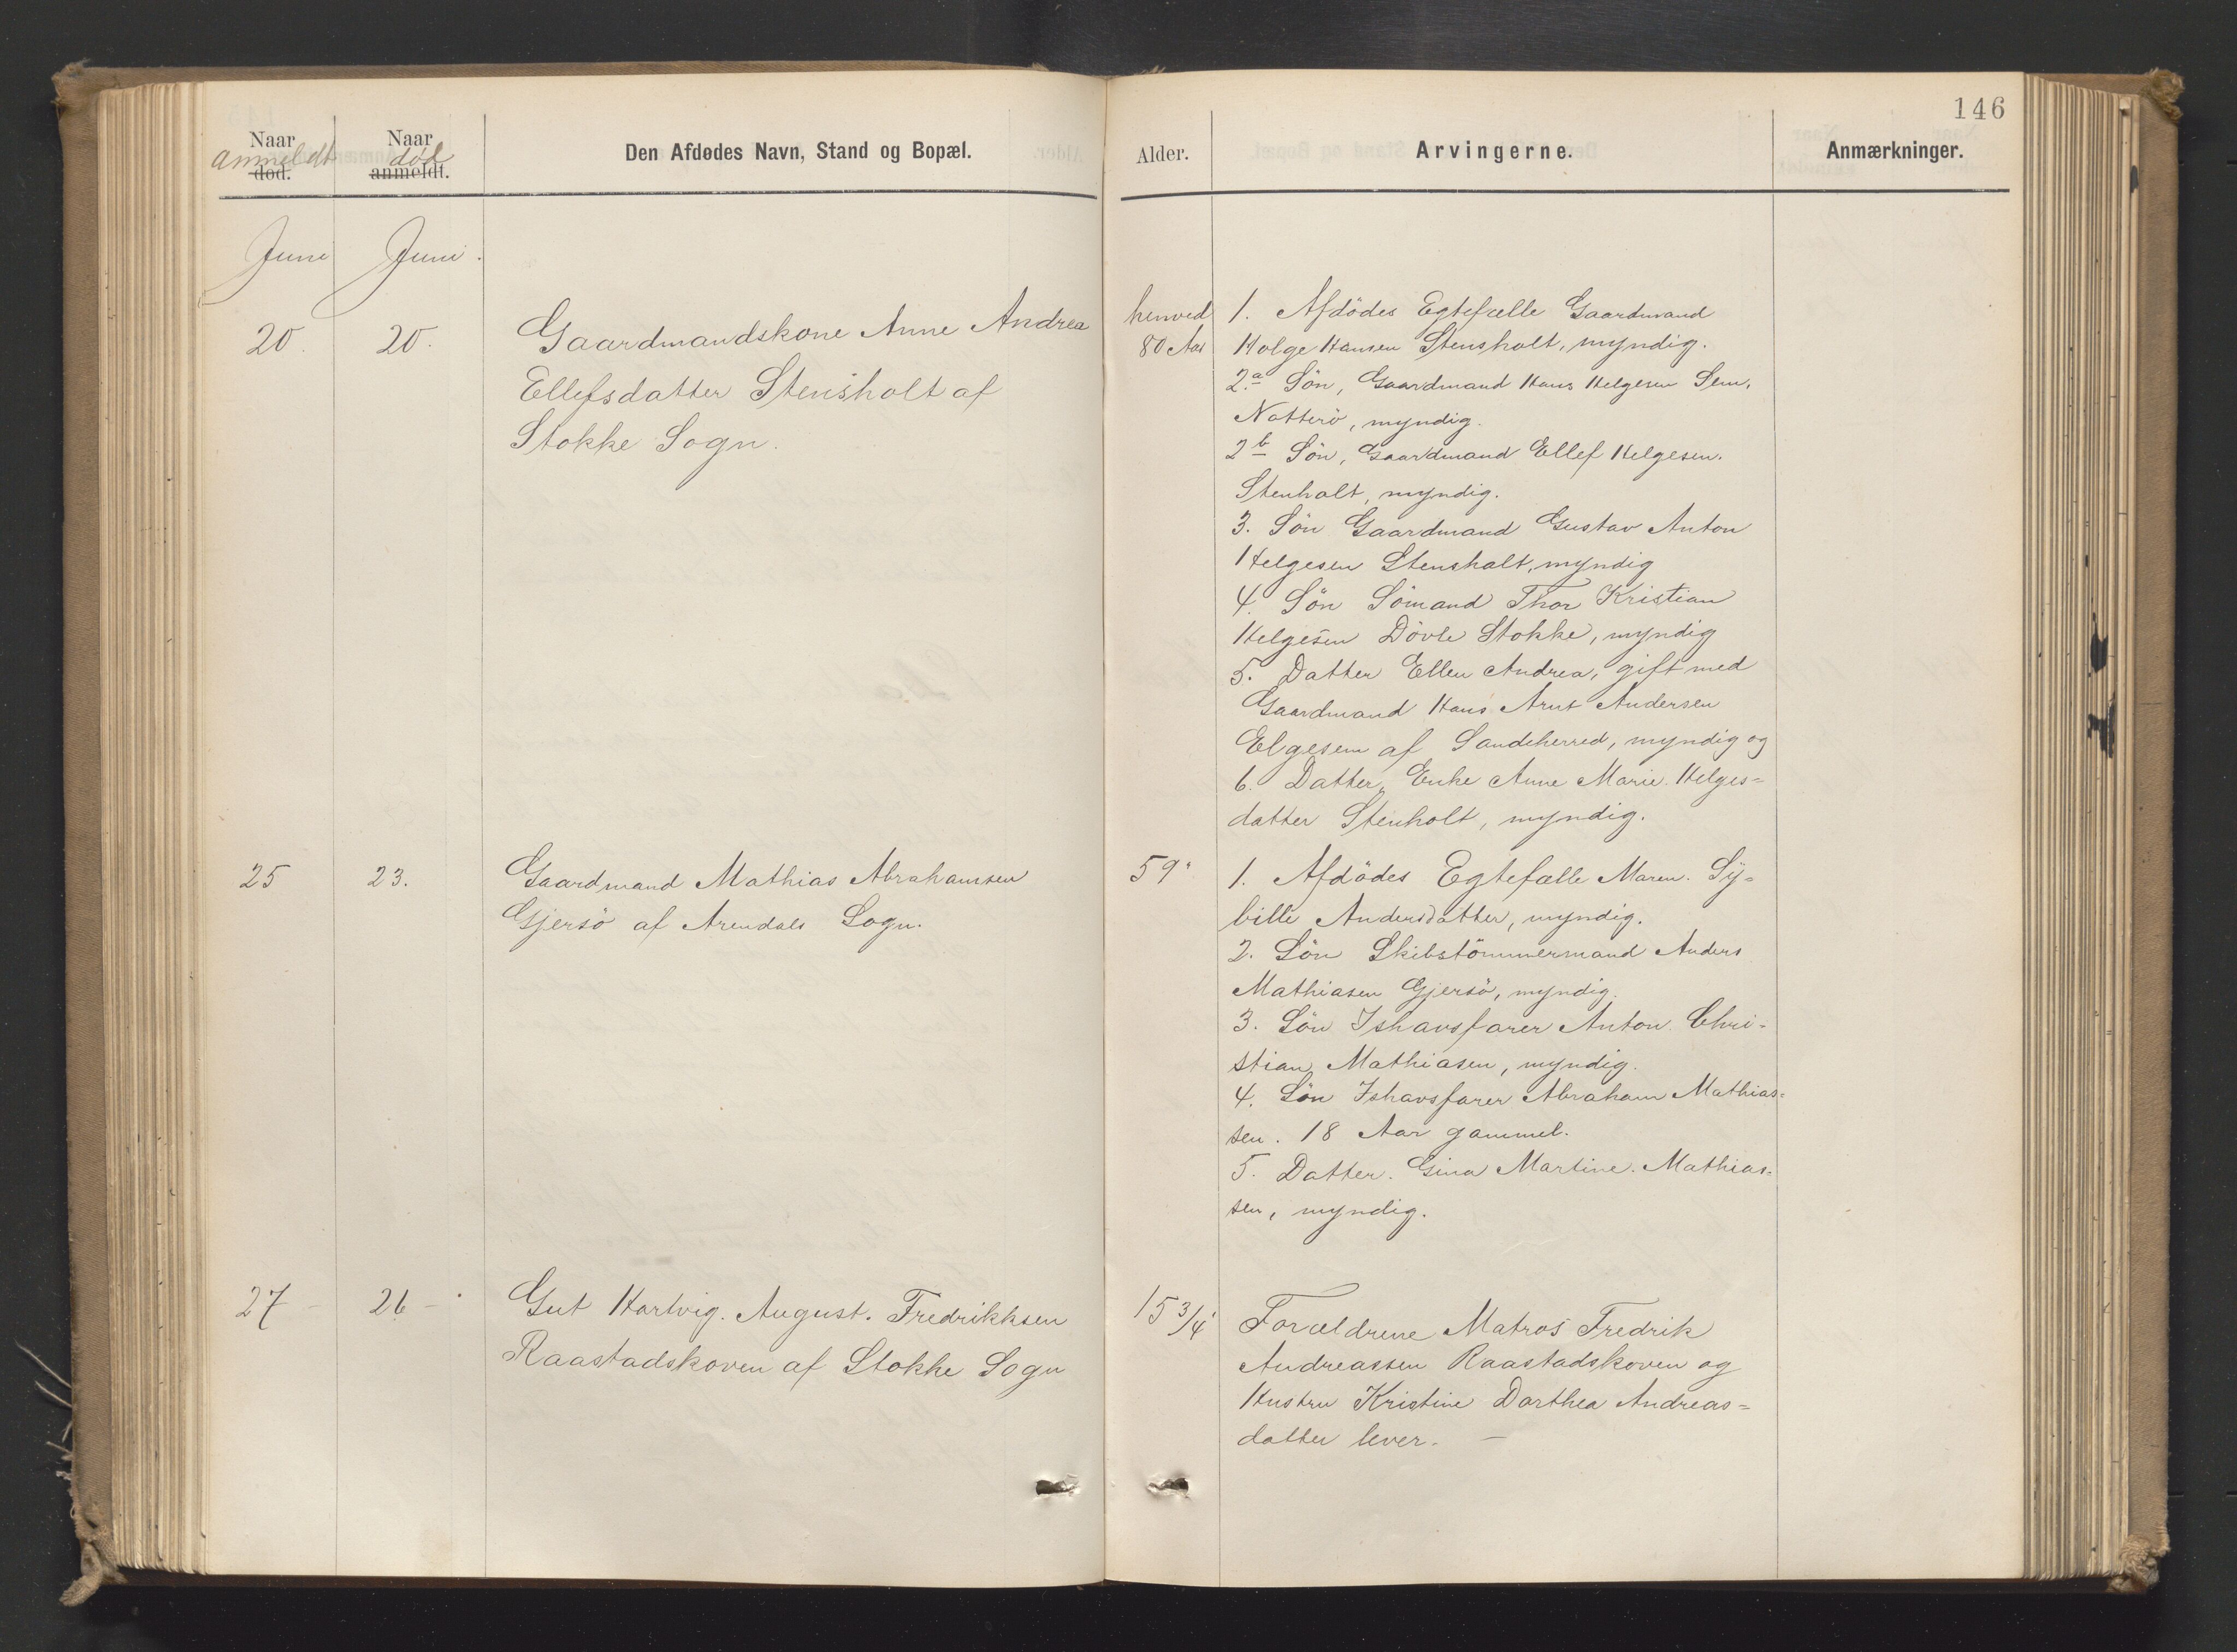 146
Naar anmeldt død.
Naar død anmeldt.
Den Afdødes Navn, Stand og Bopæl.
Alder.
Arvingerne.
Anmærkninger.
Juni
Juni.
20.
20.
Gaardmandskone Anne Andrea
Ellefsdatter Stensholt af
Stokke Sogn.
henved
80 Aar
1. Afdödes Egtefælle Gaardmand
Holge Hansen Stensholt, myndig.
2.a Sön, Gaardmand Hans Helgesen Sem,
Notterö, myndig.
2b Sön, Gaardmand Ellef Helgesen.
Stenholt, myndig.
3. Sön Gaardmand Gustav Anton
Helgesen Stensholt, myndig
4. Sön Sömand Thor Kristian
Helgesen Dövle Stokke, myndig
5. Datter Ellen Andrea, gift med
Gaardmand Hans Arnt Andersen
Elgesem af Sandeherred, myndig og
6. Datter, Enke Anne Marie Helges=
datter Stenholt, myndig.
25
23.
Gaardmand Mathias Abrahamsen
Gjersö af Arendals Sogn.
59
1. Afdödes Egtefælle Maren. Sy=
bille Andersdatter, myndig.
2. Sön Skibstömmermand Anders
Mathiasen Gjersö, myndig.
3. Sön Ishavsfarer Anton Chri=
stian Mathiasen, myndig.
4. Sön Ishavsfarer Abraham Mathias=
sen. 18 Aar gammel.
5. Datter. Gina Martine. Mathias=
sen, myndig.
27 -
26 -
Gut Hartvig. August. Fredrikksen
Raastadskoven af Stokke Sogn
15 3/4
Forældrene Matros Fredrik
Andreassen Raastadskoven og
Hustru Kristine Dorthea Andreas=
datter lever. -